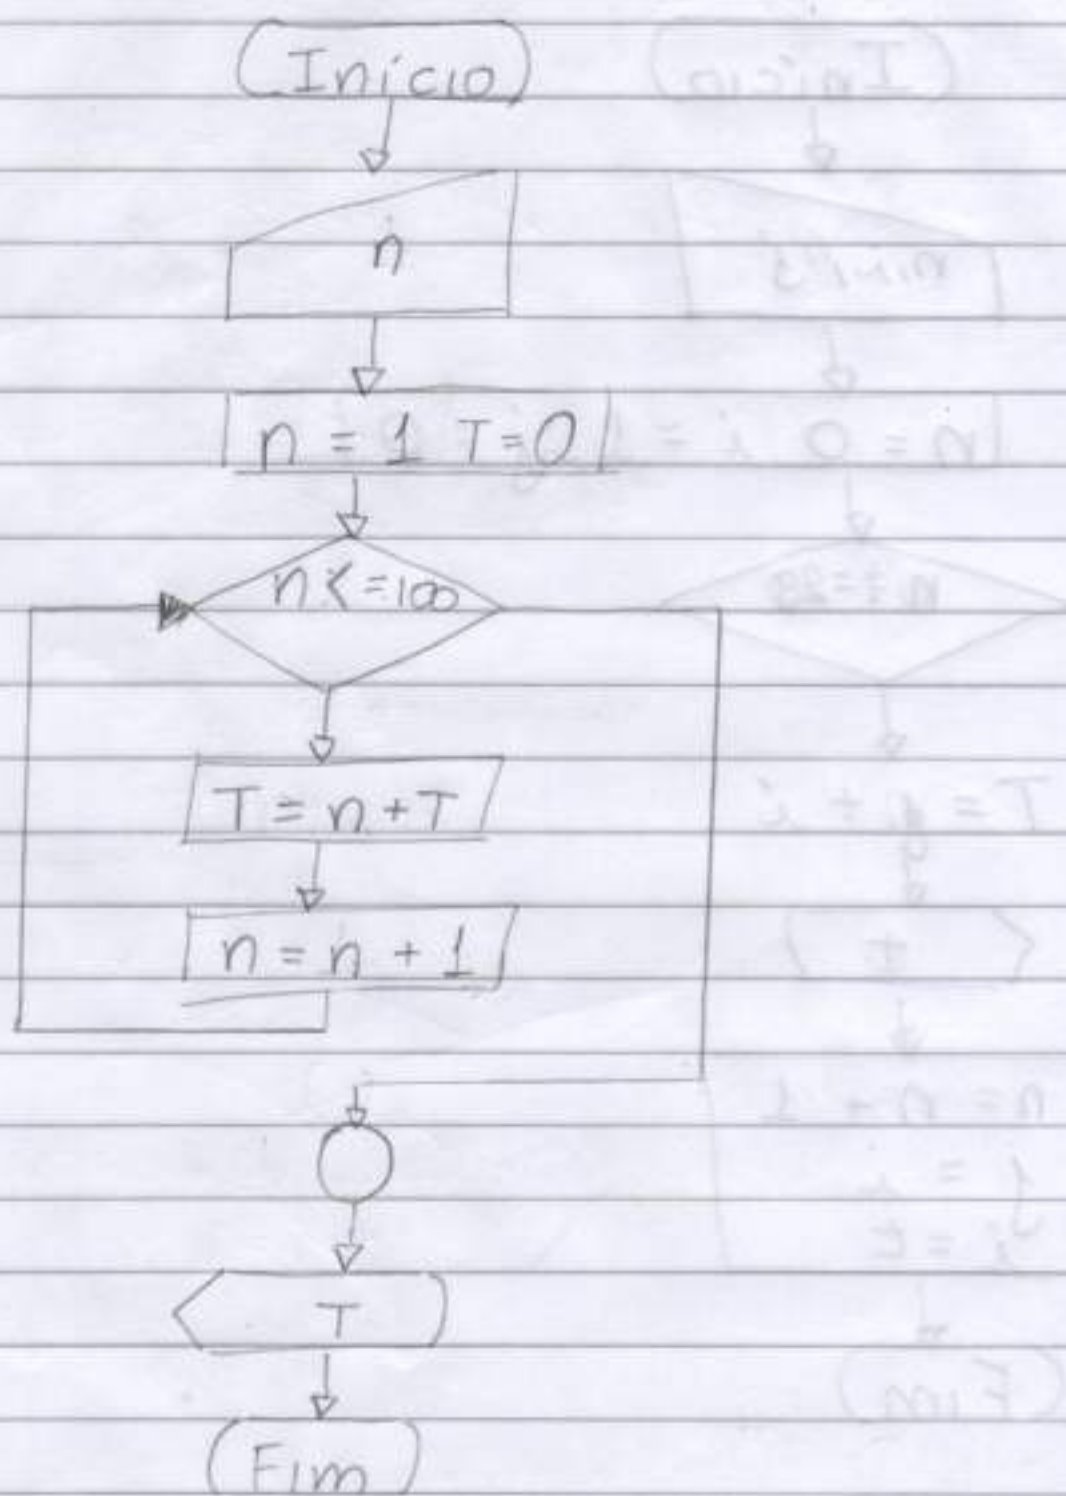 Início
n
n = 1 T=0
n <= 100
T = n + T
n = n + 1
T
Fim